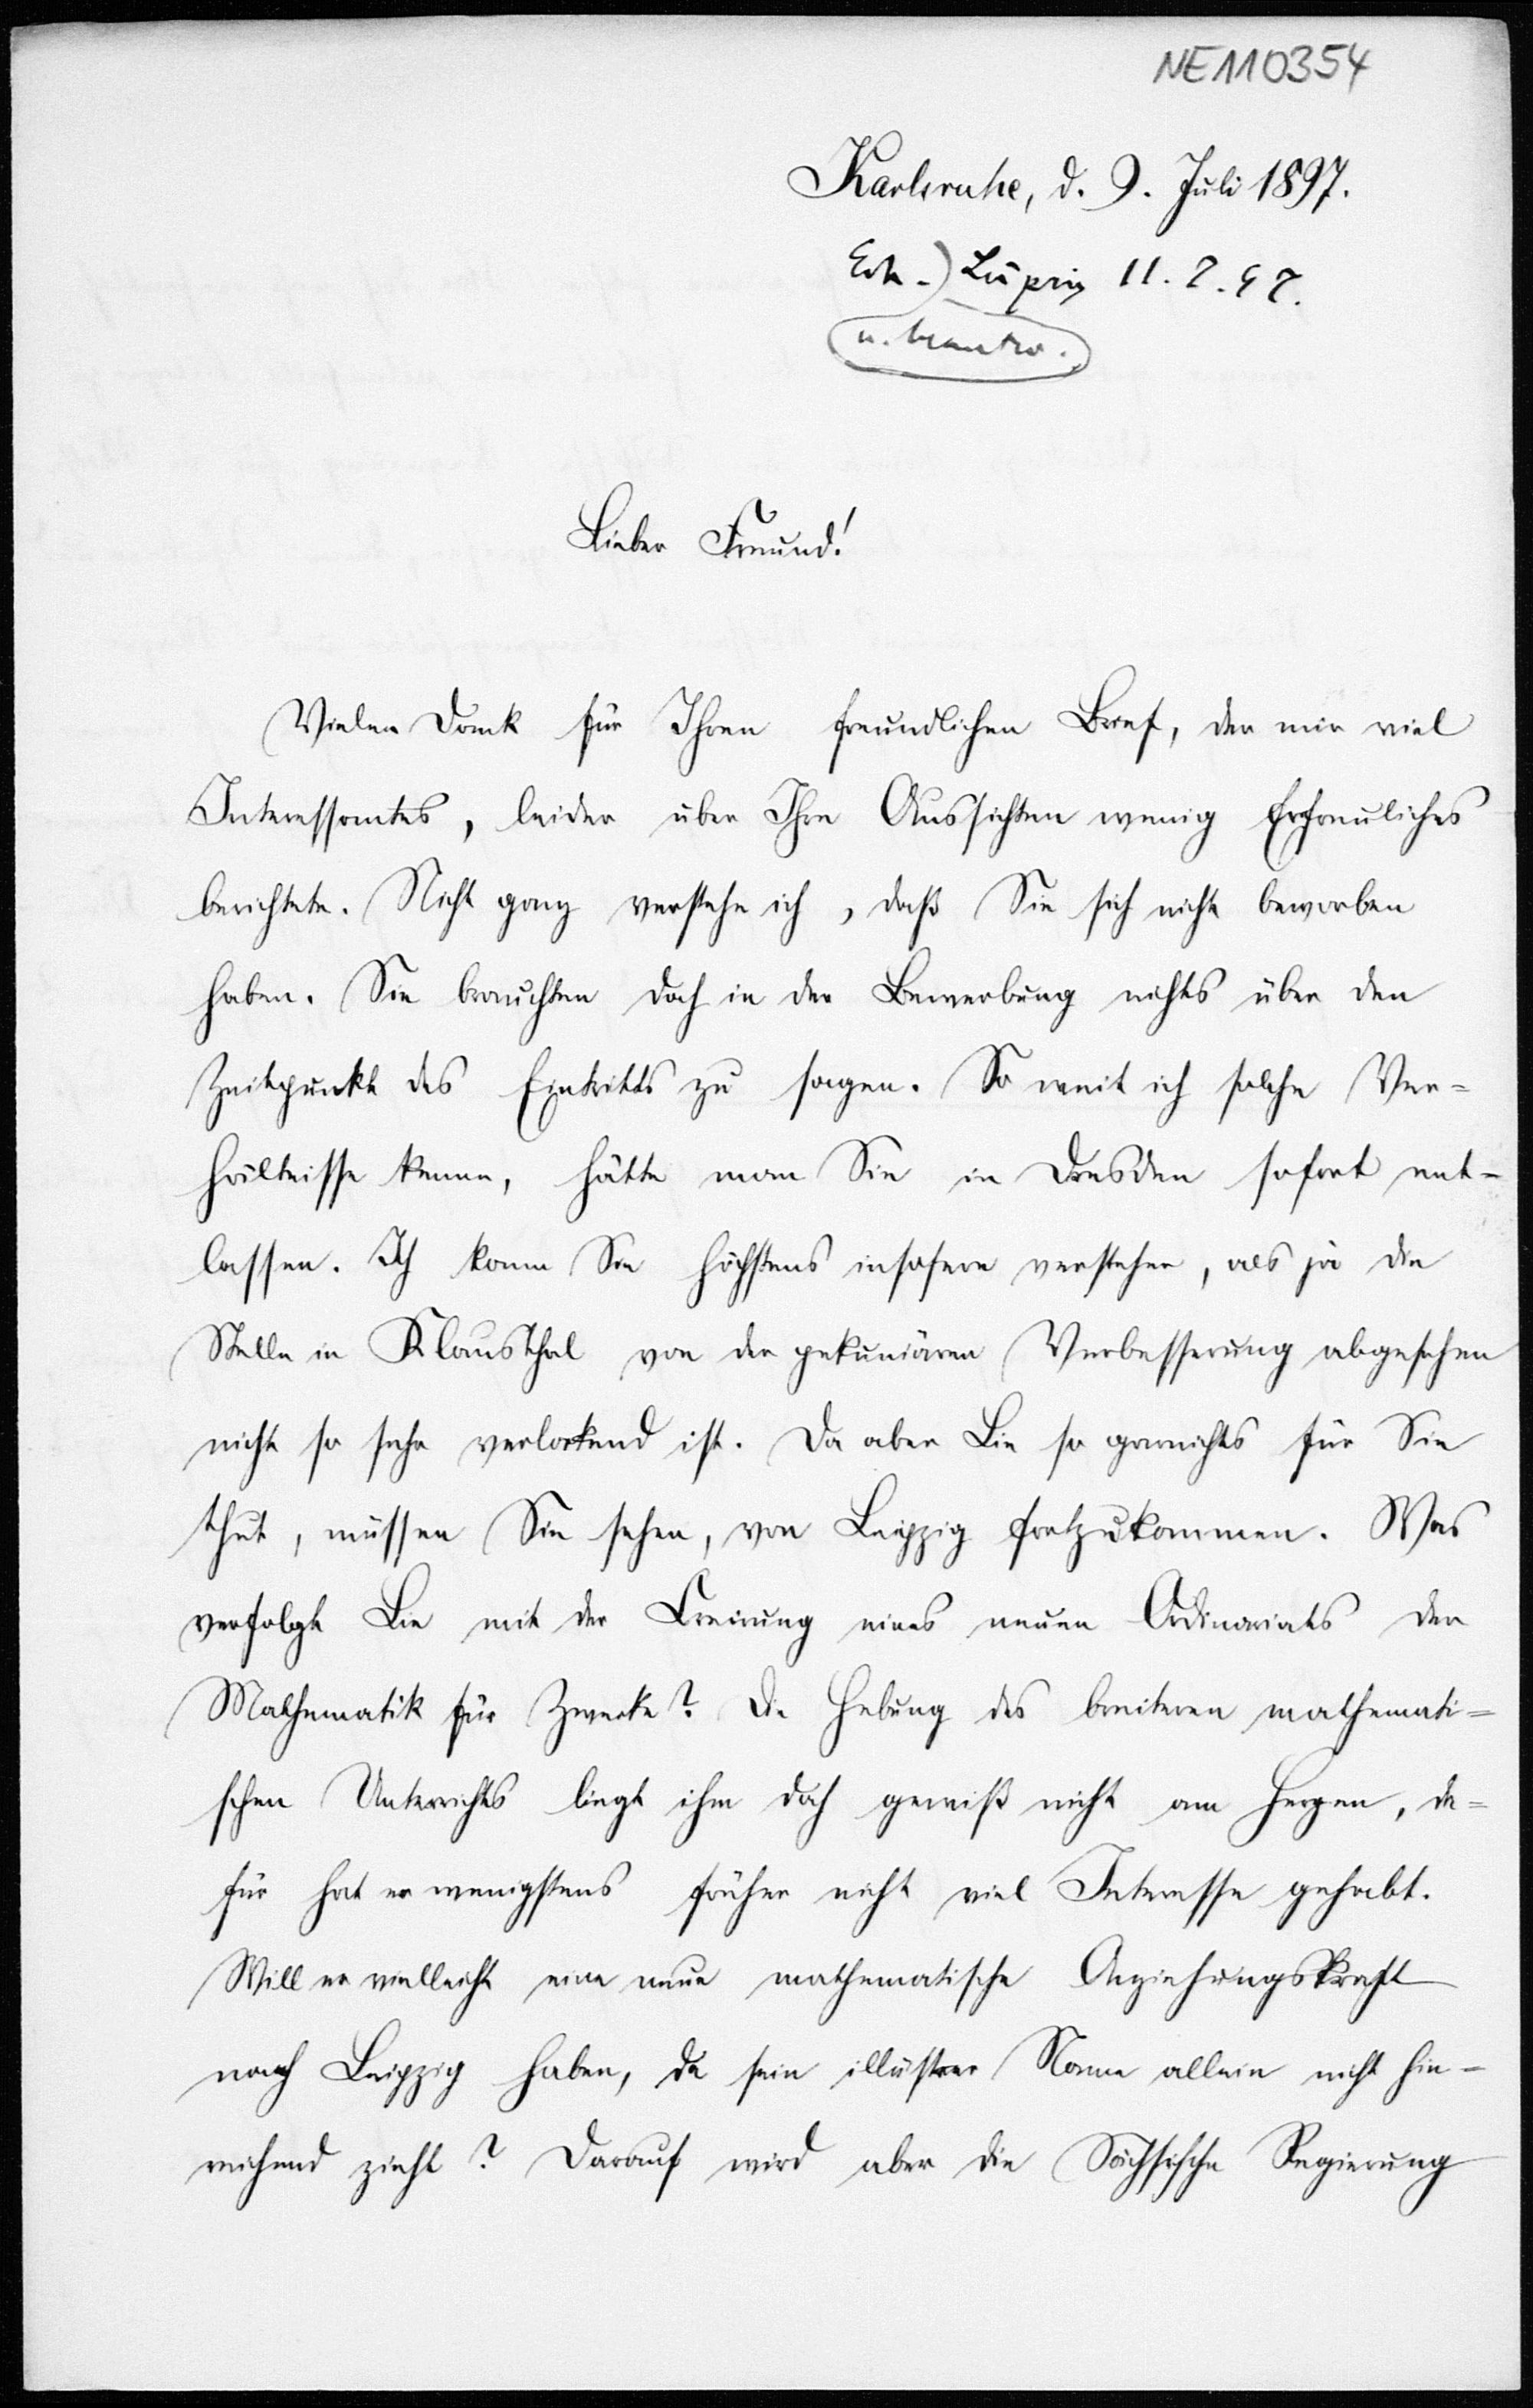 NE110354
Karlsruhe, d. 9. Juli 1897.
Erh. Leipzig 11.7.97.
u. beantw.
Lieber Freund!
Vielen Dank für Ihren freundlichen Brief, der mir viel
Interessantes, leider über Ihre Aussichten wenig Erfreuliches
berichtete. Nicht ganz verstehe ich, daß Sie sich nicht beworben
haben. Sie brauchten doch in der Bewerbung nichts über den
Zeitpunkt des Eintritts zu sagen. So weit ich solche Ver=
hältnisse kenne, hätte man Sie in Dresden sofort ent=
lassen. Ich kann Sie höchstens insofern verstehen, als ja die
Stelle in Klausthal von der pekuniären Verbesserung abgesehen
nicht so sehr verlockend ist. Da aber Lie so garnichts für Sie
thut, müssen Sie sehen, von Leipzig fortzukommen. Was
verfolgt Lie mit der Creirung eines neuen Ordinariats der
Mathematik für Zwecke? Die Hebung des breiteren mathemati=
schen Unterrichts liegt ihm doch gewiß nicht am Herzen, da=
für hat er wenigstens früher nicht viel Interesse gehabt.
Will er vielleicht eine neue mathematische Anziehungskraft
nach Leipzig haben, da sein illustrer Name allein nicht hin=
reichend zieht? Darauf wird aber die Sächsische Regierung